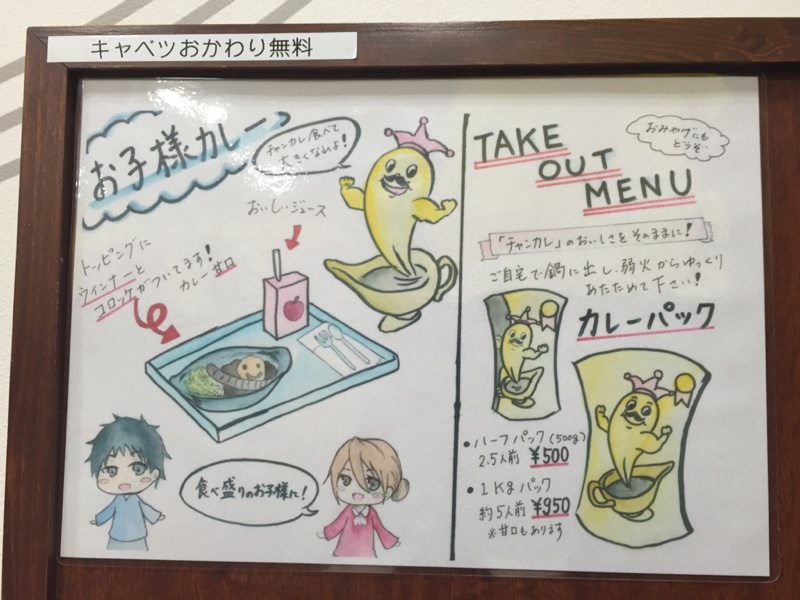 キャベツおかわり無料
お子様カレー
チャンカレ食べて
大きくなれよ!
おいしいジュース
トッピングに
ウィンナーと
コロッケがついてます!
カレー甘口
食べ盛りのお子様に!
TAKE
OUT
MENU
おみやげにも
どうぞ..
「チャンカレ」のおいしさをそのままに!
ご自宅で鍋に出し、弱火からゆっくり
あたためて下さい!
カレーパック
• ハーフパック(500g)
2.5人前 ¥500
• 1Kgパック
約5人前 ¥950
※甘口もあります